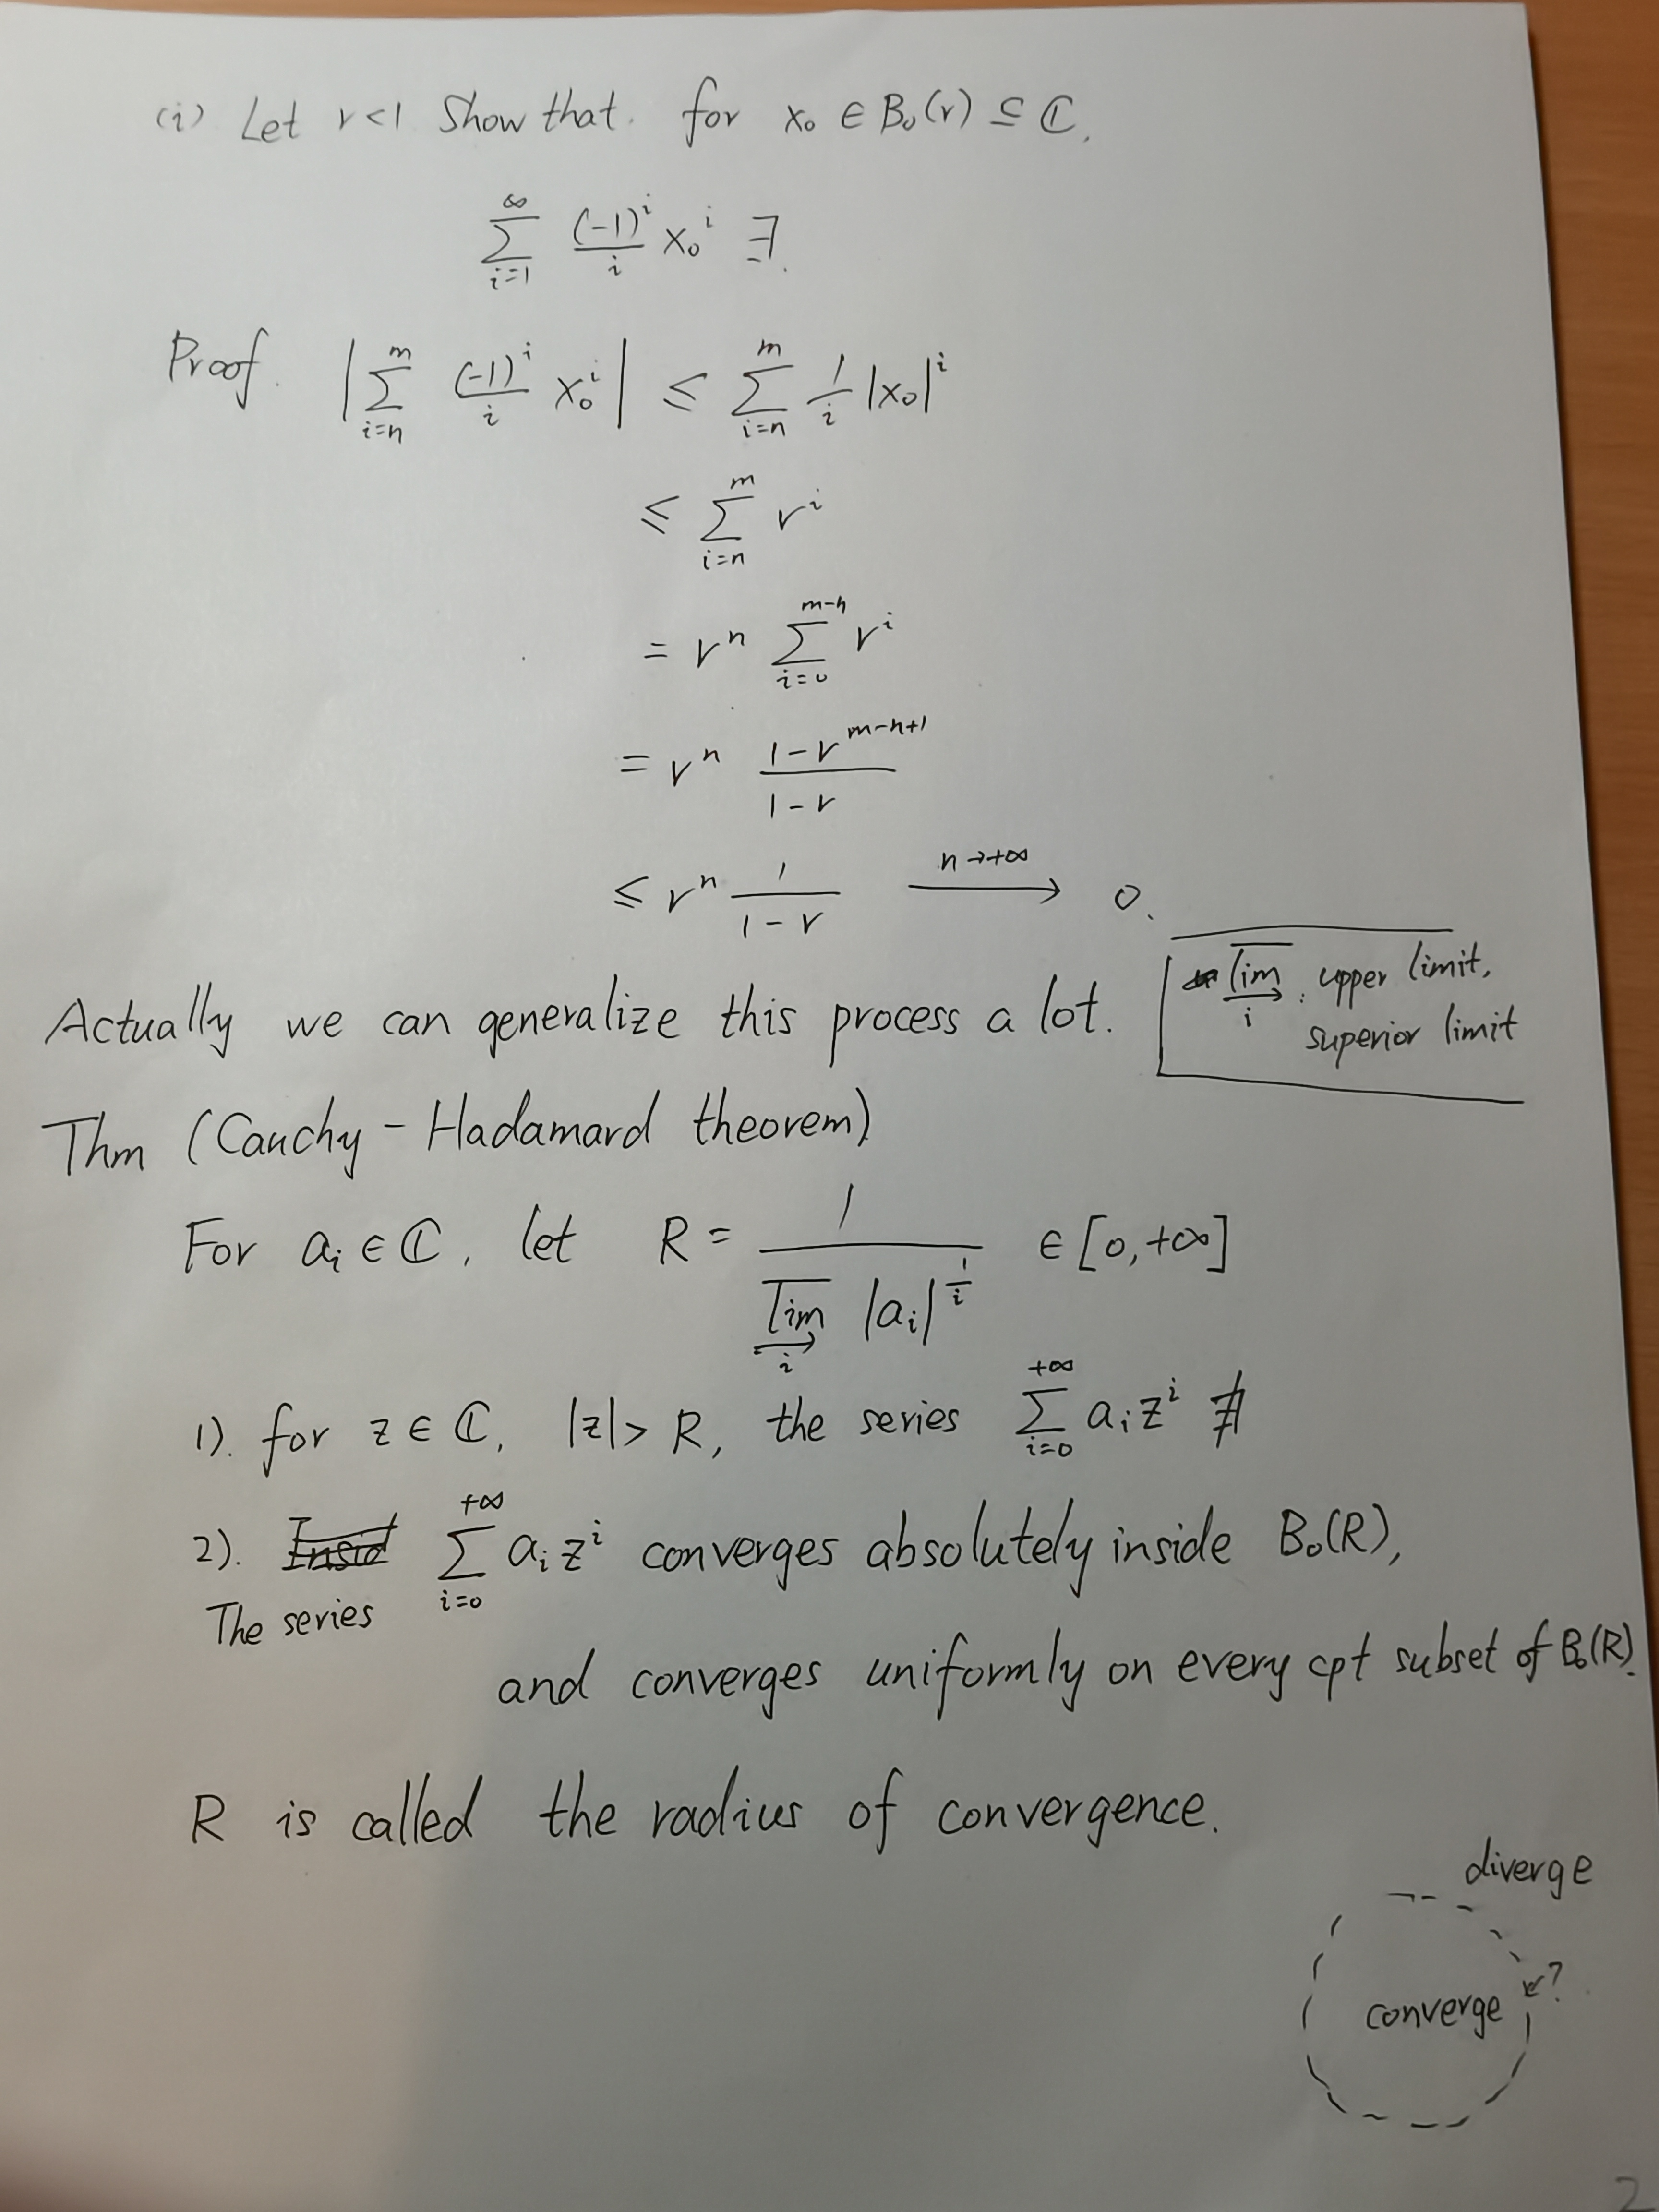 (i) Let r<1 Show that. for x₀ ∈ B₀(r) ⊆ ℂ,
$\sum_{i=1}^{\infty} \frac{(-1)^i}{i} x_0^i$ ∃.
Proof. $\left| \sum_{i=n}^{m} \frac{(-1)^i}{i} x_0^i \right| \leq \sum_{i=n}^{m} \frac{1}{i} |x_0|^i$
$\leq \sum_{i=n}^{m} r^i$
$= r^n \sum_{i=0}^{m-n} r^i$
$= r^n \frac{1-r^{m-n+1}}{1-r}$
$\leq r^n \frac{1}{1-r} \xrightarrow{n \to +\infty} 0.$
Actually we can generalize this process a lot.
$\overline{\underset{i}{\underrightarrow{\lim}}}$ : upper limit,
superior limit
Thm (Cauchy - Hadamard theorem)
For $a_i \in ℂ$, let $R = \frac{1}{\overline{\underset{i}{\underrightarrow{\lim}}} |a_i|^{\frac{1}{i}}} \in [0, +\infty]$
1). for z ∈ ℂ, |z| > R, the series $\sum_{i=0}^{+\infty} a_i z^i$ ∄
2). The series $\sum_{i=0}^{+\infty} a_i z^i$ converges absolutely inside B₀(R),
and converges uniformly on every cpt subset of B₀(R).
R is called the radius of convergence.
diverge
?
converge
2